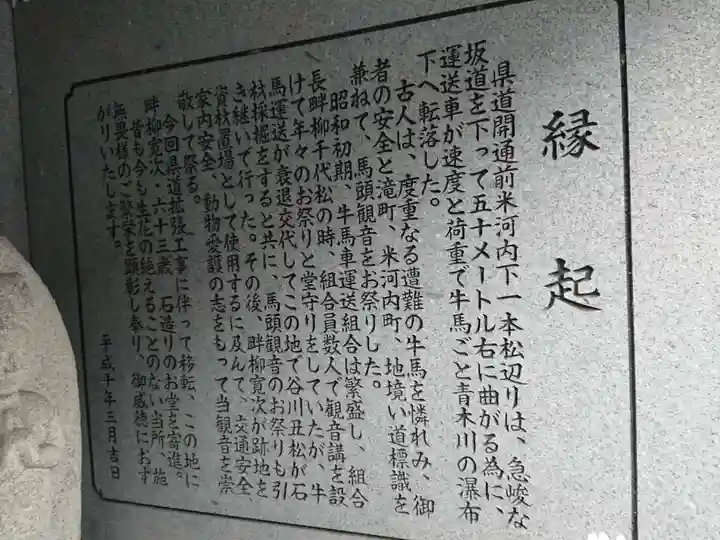 縁起
県道開通前米河内下一本松辺りは、急峻な
坂道を下って五十メートル右に曲がる為に、
運送車が速度と荷重で牛馬ごと青木川の瀑布
下へ転落した。
古人は、度重なる遭難の牛馬を憐れみ、御
者の安全と滝町、米河内町、地境い道標識を
兼ねて、馬頭観音をお祭りした。
昭和初期、牛馬車運送組合は繁盛し、組合
長畔柳千代松の時、組合員数人で観音講を設
けて年々のお祭りと堂守りをしていたが、牛
馬運送が衰退交代してこの地で谷川丑松が石
材採掘をすると共に、馬頭観音のお祭りも引
き継いで行った。その後、畔柳寛次が跡地を
資材置場として使用するに及んで、交通安全、
家内安全、動物愛護の志をもって当観音を崇
敬して祭る。
今回県道拡張工事に伴って移転、この地に
畔柳寛次・六十三歳 石造りのお堂を寄進。
昔も今も生花の絶えることのない当所、施
無畏様のご繁栄を顕彰し参り、御威徳におす
がりいたします。
平成十年三月吉日